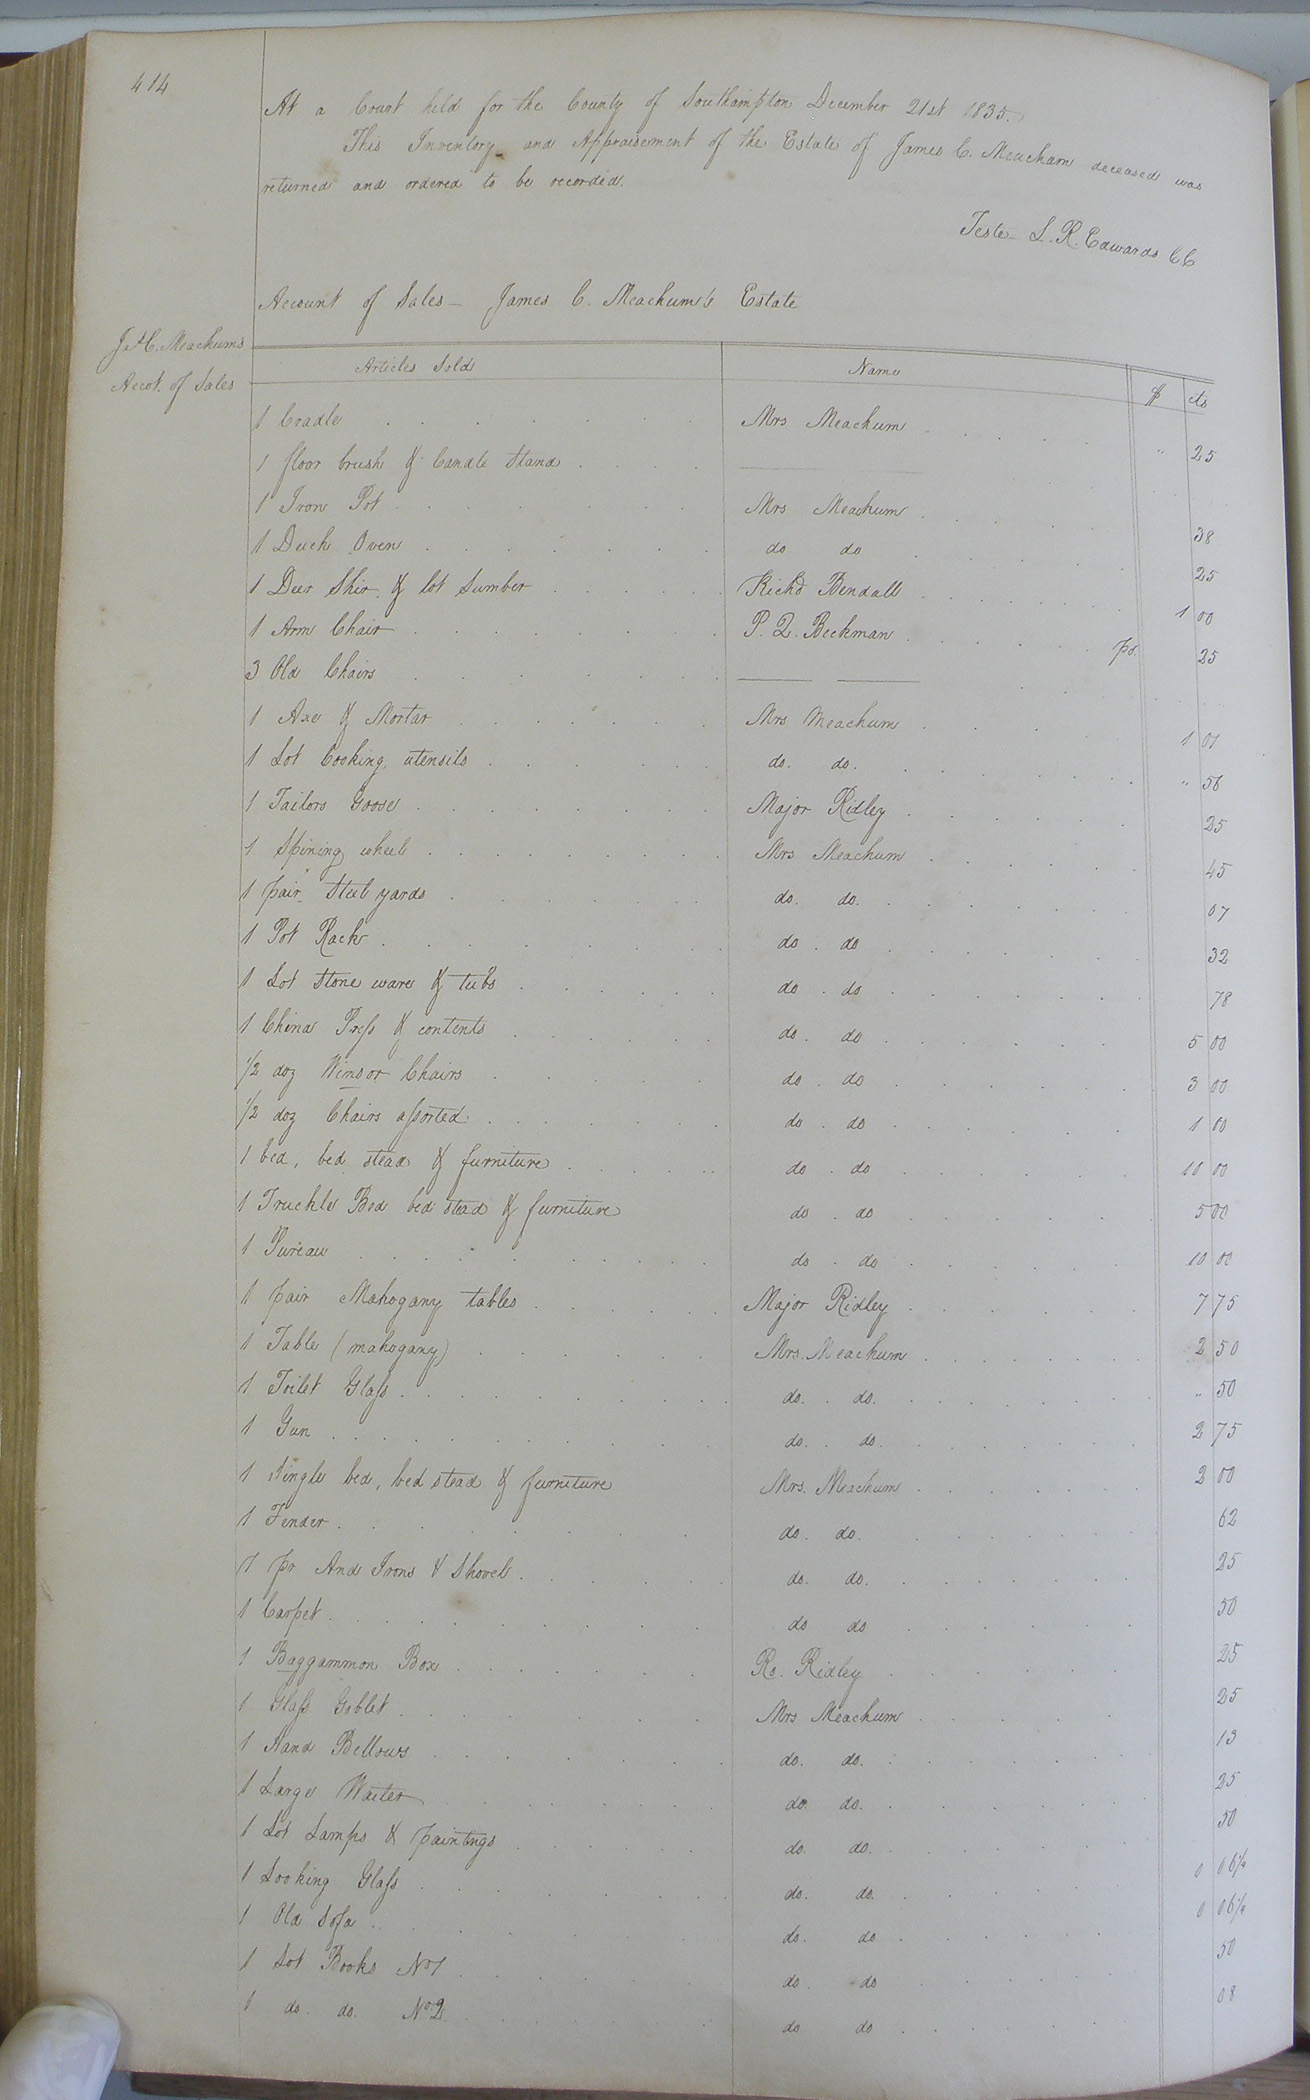 414
At a Court held for the County of Southampton December 21st 1835.
This Inventory and Appraisement of the Estate of James C. Meacham deceased was
returned and ordered to be recorded.
Teste L. R. Edwards CC
Account of Sales James C. Meachum's Estate
Js C. Meachums
Acct. of Sales
Articles Sold Name $ cts
1 Cradle Mrs Meachum " 25
1 floor brush & Candle Stand
1 Iron Pot Mrs Meachum 38
1 Duch Oven do do 25
1 Deer Skin & lot Lumber Richd Bendall 1 00
1 Arm Chair P. Q. Beekman pd. 25
3 Old Chairs
1 Axe & Mortar Mrs Meachum 1 01
1 Lot Cooking utensils do. do. " 56
1 Tailors Goose Major Ridley 25
1 Spining wheel Mrs Meachum 45
1 pair Steel yards do. do. 07
1 Pot Rack do. do 32
1 Lot Stone ware & tubs do. do 78
1 China Press & contents do. do 5 00
1/2 doz Winsor Chairs do. do 3 00
1/2 doz Chairs assorted do. do 1 00
1 bed, bed stead & furniture do. do 10 00
1 Truckle Bed bed stead & furniture do. do 5 00
1 Bureau do. do 10 00
1 pair Mahogany tables Major Ridley 7 75
1 Table (mahogany) Mrs. Meachum 2 50
1 Toilet Glass do. do. " 50
1 Gun do. do. 2 75
1 Single bed, bed stead & furniture Mrs. Meachum 2 00
1 Fender do. do. 62
1 pr And Irons & Shovel do. do. 25
1 Carpet do do 50
1 Baggammon Box Ro. Ridley 25
1 Glass Goblet Mrs Meachum 25
1 Hand Bellows do. do. 13
1 Large Waiter do. do. 25
1 Lot Lamps & paintings do. do. 50
1 Looking Glass do. do. 0 06 1/4
1 Old Sofa do. do 0 06 1/4
1 Lot Books No1 do. do 50
1 do. do. No2 do do 08